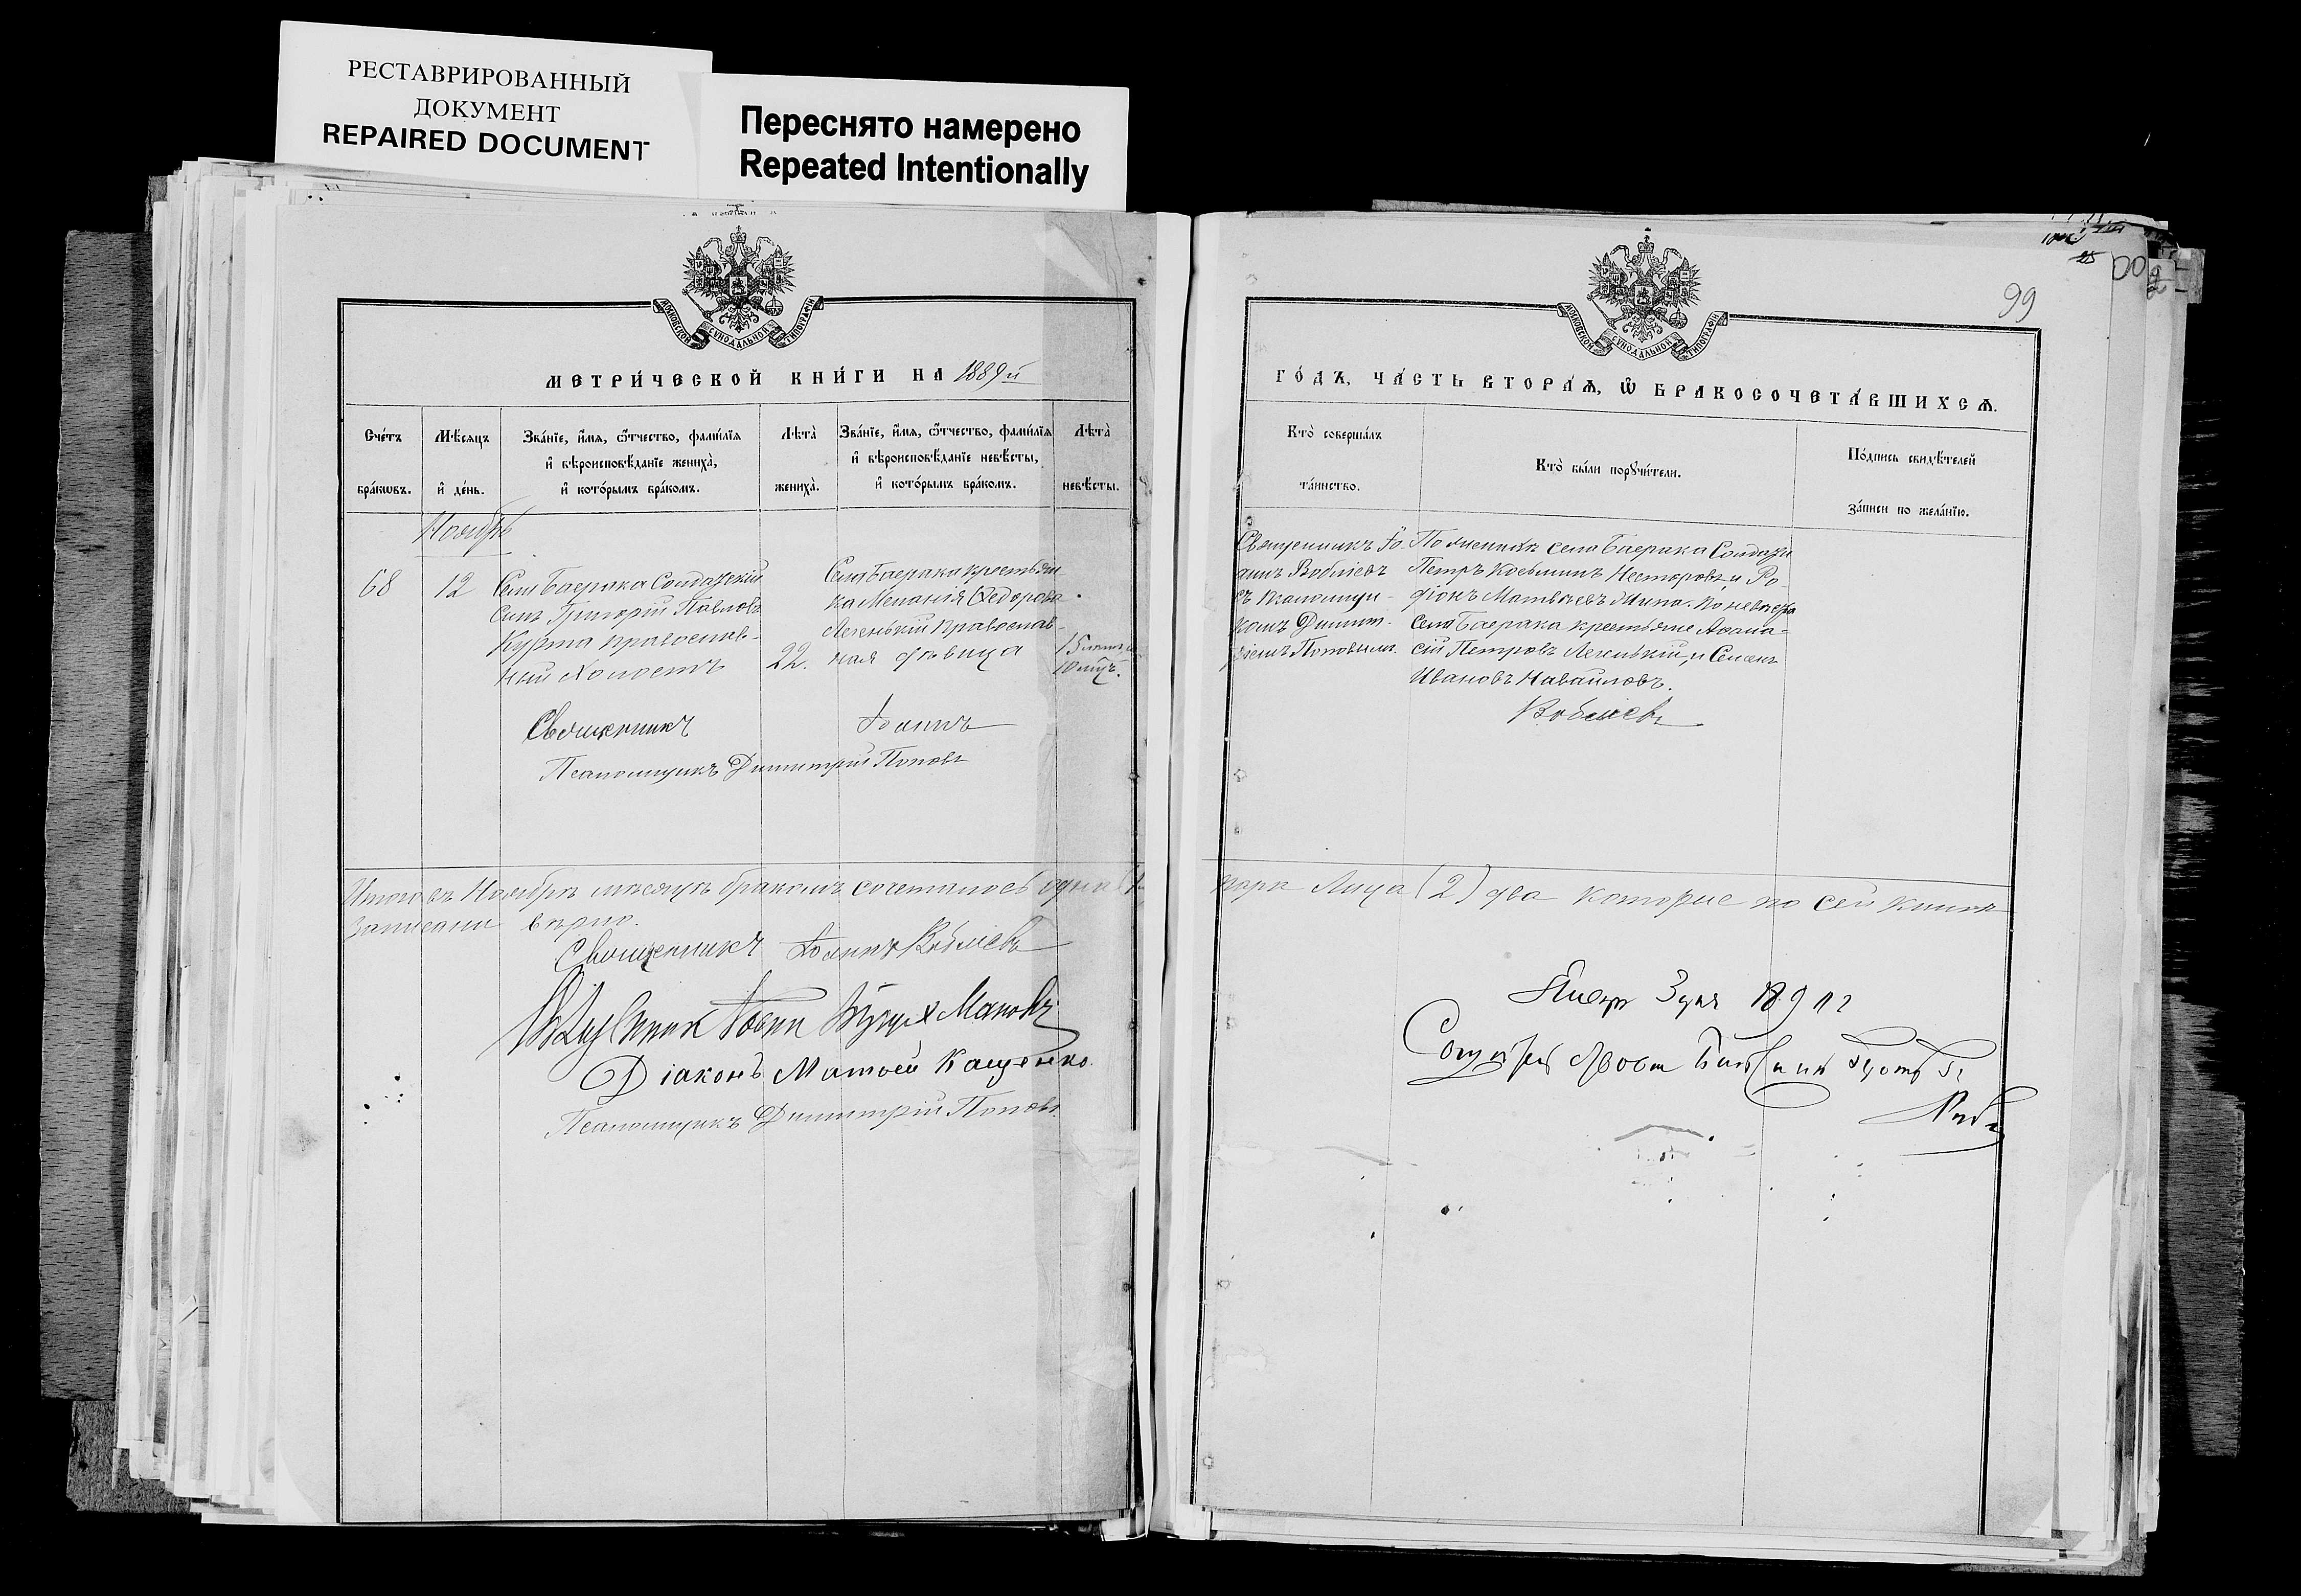 РЕСТАВРИРОВАННЫЙ
ДОКУМЕНТ
REPAIRED DOCUMENT
Переснято намерено
Repeated Intentionally
МОСКОВСКОЙ СѴНОДАЛЬНОЙ ТИПОГРАФІИ
МЕТРИ́ЧЕСКОЙ КНИ́ГИ НА 1889й
Сче́тъ бра́кѡвъ.
Мѣ́сяцъ и҆ де́нь.
Зва́нїе, и҆́мѧ, ѻ҆́тчество, фами́лїѧ
и҆ вѣроисповѣ́данїе жениха̀,
и҆ кото́рымъ бра́комъ.
Лѣта̀ жениха̀.
Зва́нїе, и҆́мѧ, ѻ҆́тчество, фами́лїѧ
и҆ вѣроисповѣ́данїе невѣ́сты,
и҆ кото́рымъ бра́комъ.
Лѣта̀ невѣ́сты.
Ноябрь
68
12
Села Баерака Солдатскій
сынъ Григорій Павловъ
Курта православ-
ный Холостъ
22.
Села Баерака крестьян
ка Меланія Ѳедорова
Легенькій Православ-
ная девица
15 летъ
10 мцъ.
Священникъ Іоаннъ
Псаломщикъ Димитрій Поповъ
Итого въ Ноябрѣ месяцѣ бракомъ сочеталось одна (1
Записани верно.
Священникъ Іоаннъ Воблиевъ
Діаконъ Матѳей Кащенко.
Псаломщикъ Димитрій Поповъ.
99
МОСКОВСКОЙ СѴНОДАЛЬНОЙ ТИПОГРАФІИ
ГО́ДЪ, ЧА́СТЬ ВТОРА́Ѧ, Ѡ҆ БРАКОСОЧЕТА́ВШИХСѦ.
Кто̀ соверша́лъ
та́инство.
Кто̀ бы́ли порꙋчи́тели.
По́дпись свидѣ́телей
за́писи по жела́нїю.
Священникъ Іо-
аннъ Воблиевъ
съ псаломщи-
комъ Димит-
ріемъ Поповымъ.
По женихѣ села Баерака Солдаты
Петръ Косьминъ Несторовъ, и Ро
діонъ Матвѣевъ По невестѣ
Села Баерака крестьяне Афана-
сій Петровъ Легенькій, и Семенъ
Ивановъ
Воблиевъ
пара Лица (2) два которие по сей книгѣ